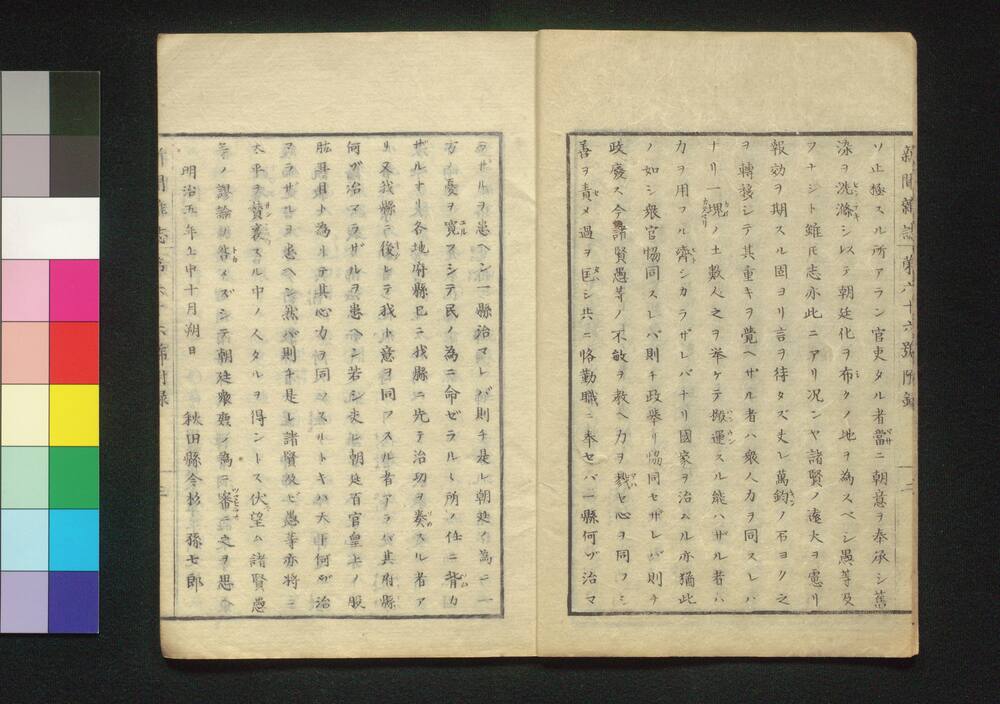 新聞雜誌第六十六號附録 二
ソ止極スル所アラン官吏タル者當ニ朝意ヲ奉承シ舊
染ヲ洗滌シ以テ朝廷化ヲ布クノ地ヲ為スベシ愚等及
フナシト雖𪜈志亦此ニアリ況ンヤ諸賢ノ遠大ヲ慮リ
報効ヲ期スル固ヨリ言ヲ待タズ丈レ萬鈞ノ石ヨリ之
ヲ轉移シテ其重キヲ覺ヘザル者ハ衆人力ヲ同スレハ
ナリ一塊ノ土數人之ヲ挙ケテ搬運スル能ハザル者ハ
力ヲ用フル齊シカラザレバナリ國家ヲ治ムル亦猶此
ノ如シ衆官協同スレバ則チ政挙リ協同セザレバ則チ
政廢ス今諸賢愚等ノ不敏ヲ教ヘ力ヲ戮セ心ヲ同フシ
善ヲ責メ過ヲ匡シ共ニ恪勤職ニ奉セバ一縣何ゾ治マ
ラザルヲ患ヘン一縣治マレバ則チ是レ朝廷ノ為ニ一
方ノ憂ヲ寛フシテ民ノ為ニ命ゼラルヽ所ノ任ニ背カ
ザルナリ各地府縣已ニ我縣ニ先テ治功ヲ奏スル者ア
リ又我縣ニ後レテ我ト意ヲ同フスル者アラバ其府縣
何ゾ治マラザルヲ患ヘン若シ夫レ朝廷百官皇上ノ股
肱耳目ト為リテ其心力ヲ同フスルトキハ天下何ゾ治
マラザルヲ患ヘン然バ則チ是レ諸賢及ビ愚等亦將ニ
太平ヲ賛襄スル中ノ人タルヲ得ントス伏望ム諸賢愚
等ノ謬論ヲ咎メズシテ朝廷衆庶ノ為ニ審ニ之ヲ思ヘ
明治五年壬申十月朔日 秋田縣令杉 孫七郎
新聞雜誌第六十六號附録 三